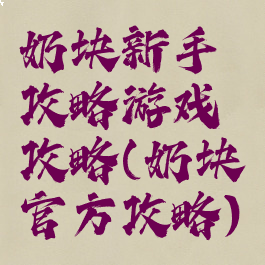 奶块新手
攻略游戏
攻略(奶块
官方攻略)